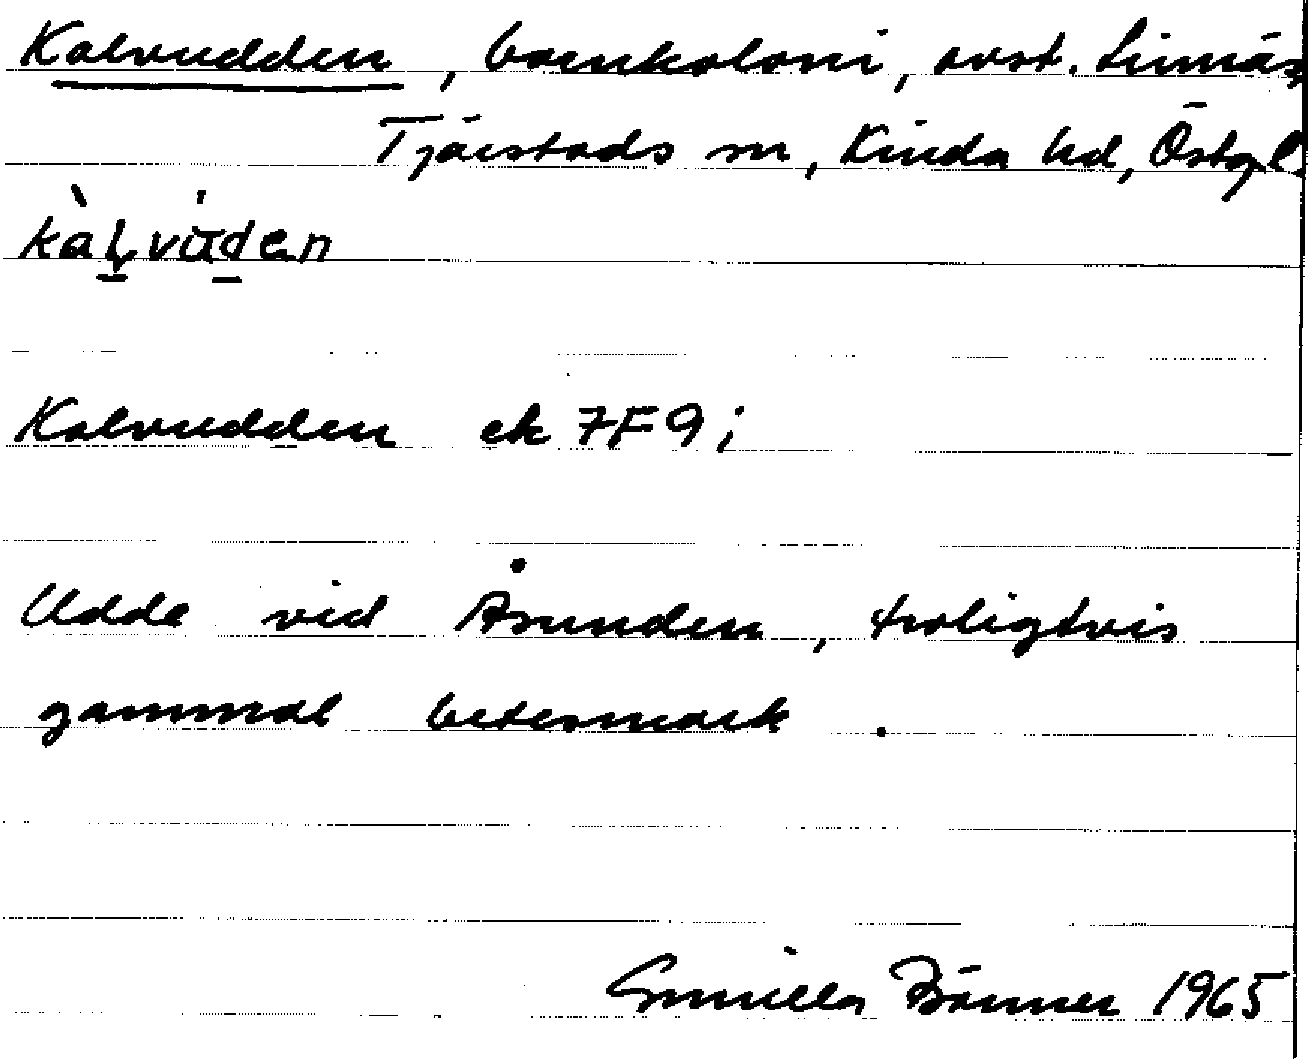 Kalvudden, barnkoloni, avst. Limnäs
Tjärstads sn, Kinda hd, Östgl.
Kalvudden ek 7F9i
Udde vid Åsunden, troligtvis
gammal betesmark.
Gunilla 1965